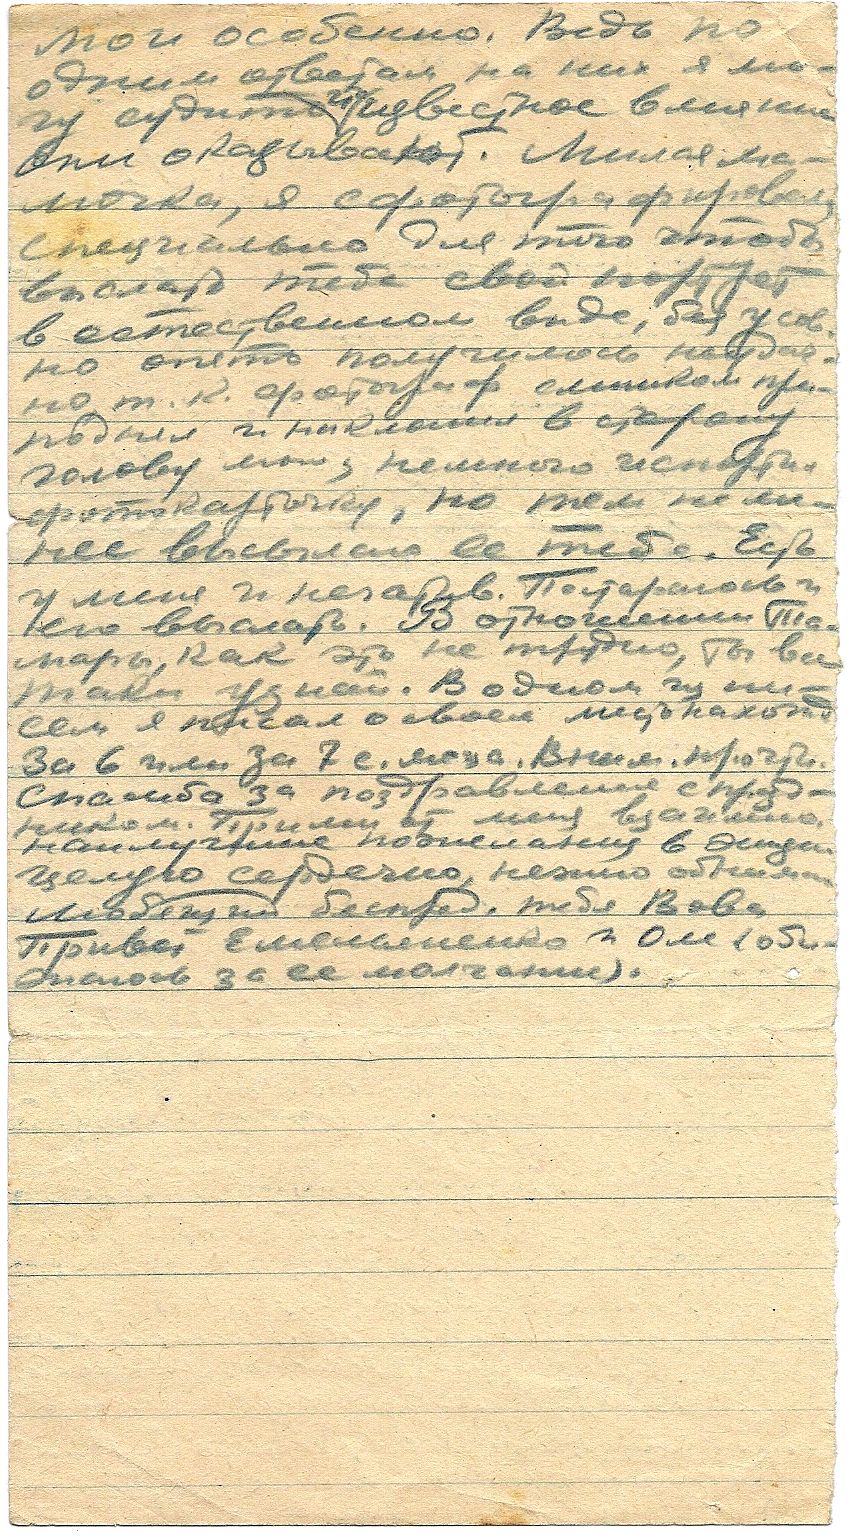 мои особенно. Ведь по
одним ответам на них я мо-
гу судить что известное влияние
они оказывают. Милая ма-
мочка, я сфотографировался
специально для того чтобы
выслать тебе свой портрет
в естественном виде, без усов,
но опять получилось неудач-
но т.к. фотограф слишком при-
поднял и наклонил в сторону
голову мою, немного испортил
фотокарточку, но тем не ме-
нее высылаю ее тебе. Есть
у меня и негатив. Постараюсь и
его выслать. В отношении Та-
мары, как это не трудно, ты все
таки узнай. В одном из пи-
сем я писал о своем местонахожд.
За 6 или за 7 с. м-ца. Вним. прочти.
Спасибо за поздравление с празд-
ником. Прими от меня взаимно.
наилучшие пожелания в жизни
целую сердечно, нежно обнимаю
Любящий беспред. тебя Вова
Привет Емельяненко и Оле (оби-
жаюсь за ее молчание).